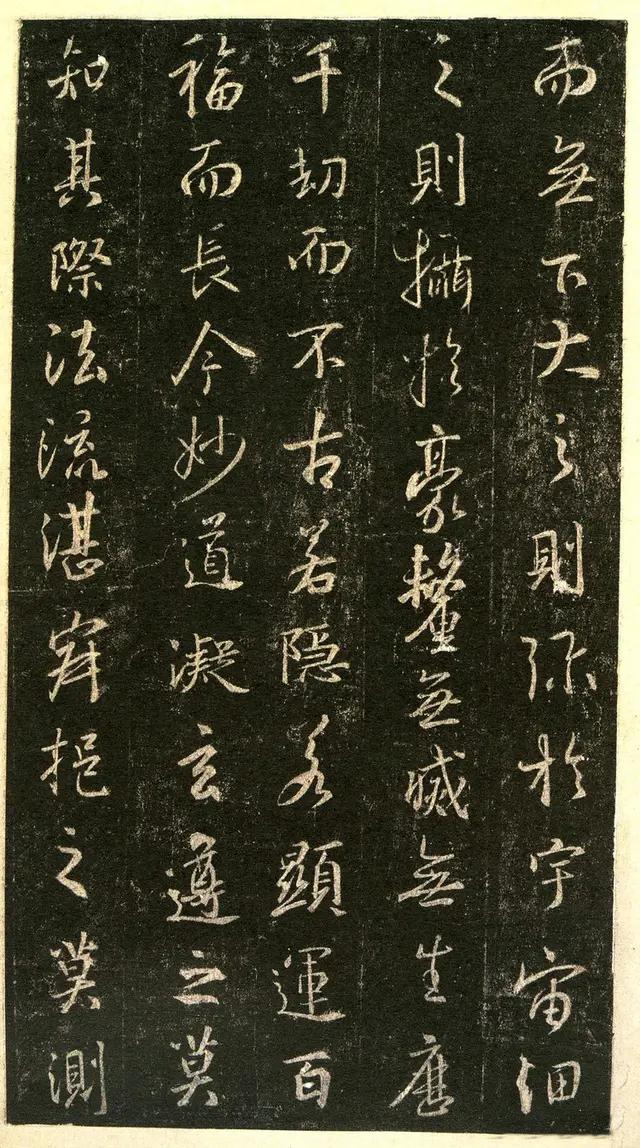 而無下大之則彌於宇宙細
之則攝於豪釐無滅無生歷
千劫而不古若隱若顯運百
福而長今妙道凝玄遵之莫
知其際法流湛寂挹之莫測